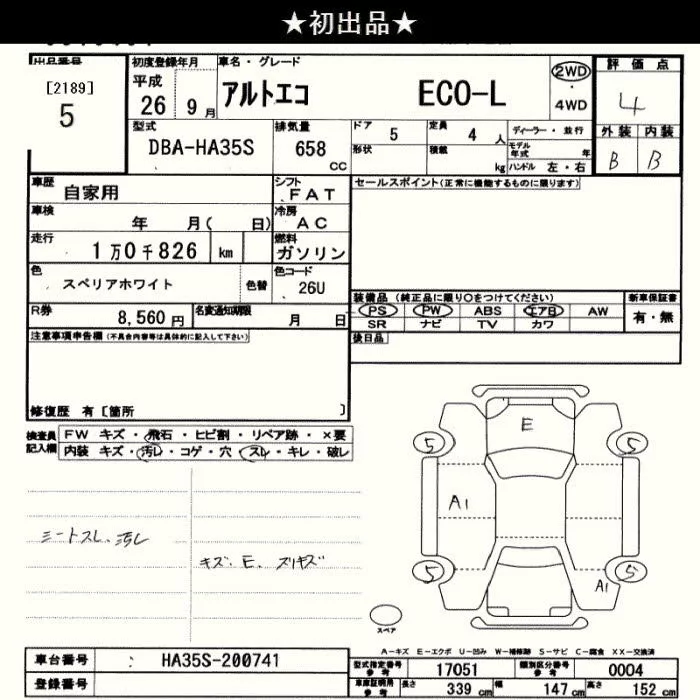 ★初出品★
出品番号
[2189]
5
初度登録年月
平成
26 9月
車名・グレード
アルトエコ ECO-L
2WD
4WD
評価点
4
外装 内装
B B
型式
DBA-HA35S
排気量
658
cc
ドア 5
定員 4 人
ディーラー・並行
形状
積載 kg
モデル年式 年
ハンドル 左・右
車歴 自家用
シフト FAT
セールスポイント(正常に機能するものに限ります)
車検 年 月( 日)
冷房 AC
走行 1万0千826 km
燃料 ガソリン
色 スペリアホワイト 色替
色コード 26U
R券 8,560円
名変通知期限 月 日
装備品 (純正品に限り○をつけてください)
新車保証書
有・無
PS PW ABS エアB AW
SR ナビ TV カワ
後日品
注意事項申告欄(不具合内容等は具体的に記入して下さい)
修復歴 有[箇所 ]
検査員記入欄
FW キズ・飛石・ヒビ割・リペア跡・×要
内装 キズ・汚レ・コゲ・穴・スレ・キレ・破レ
シートスレ、汚レ
キズ、E、スリキズ
E
5 5
A1
5 5
A1
スペア
A-キズ E-エクボ U-凹み W-補修跡 S-サビ C-腐食 XX-交換済
車台番号 HA35S-200741
登録番号
型式指定番号 参考 17051
類別区分番号 参考 0004
車庫証明用 参考 長さ 339 cm 幅 147 cm 高さ 152 cm